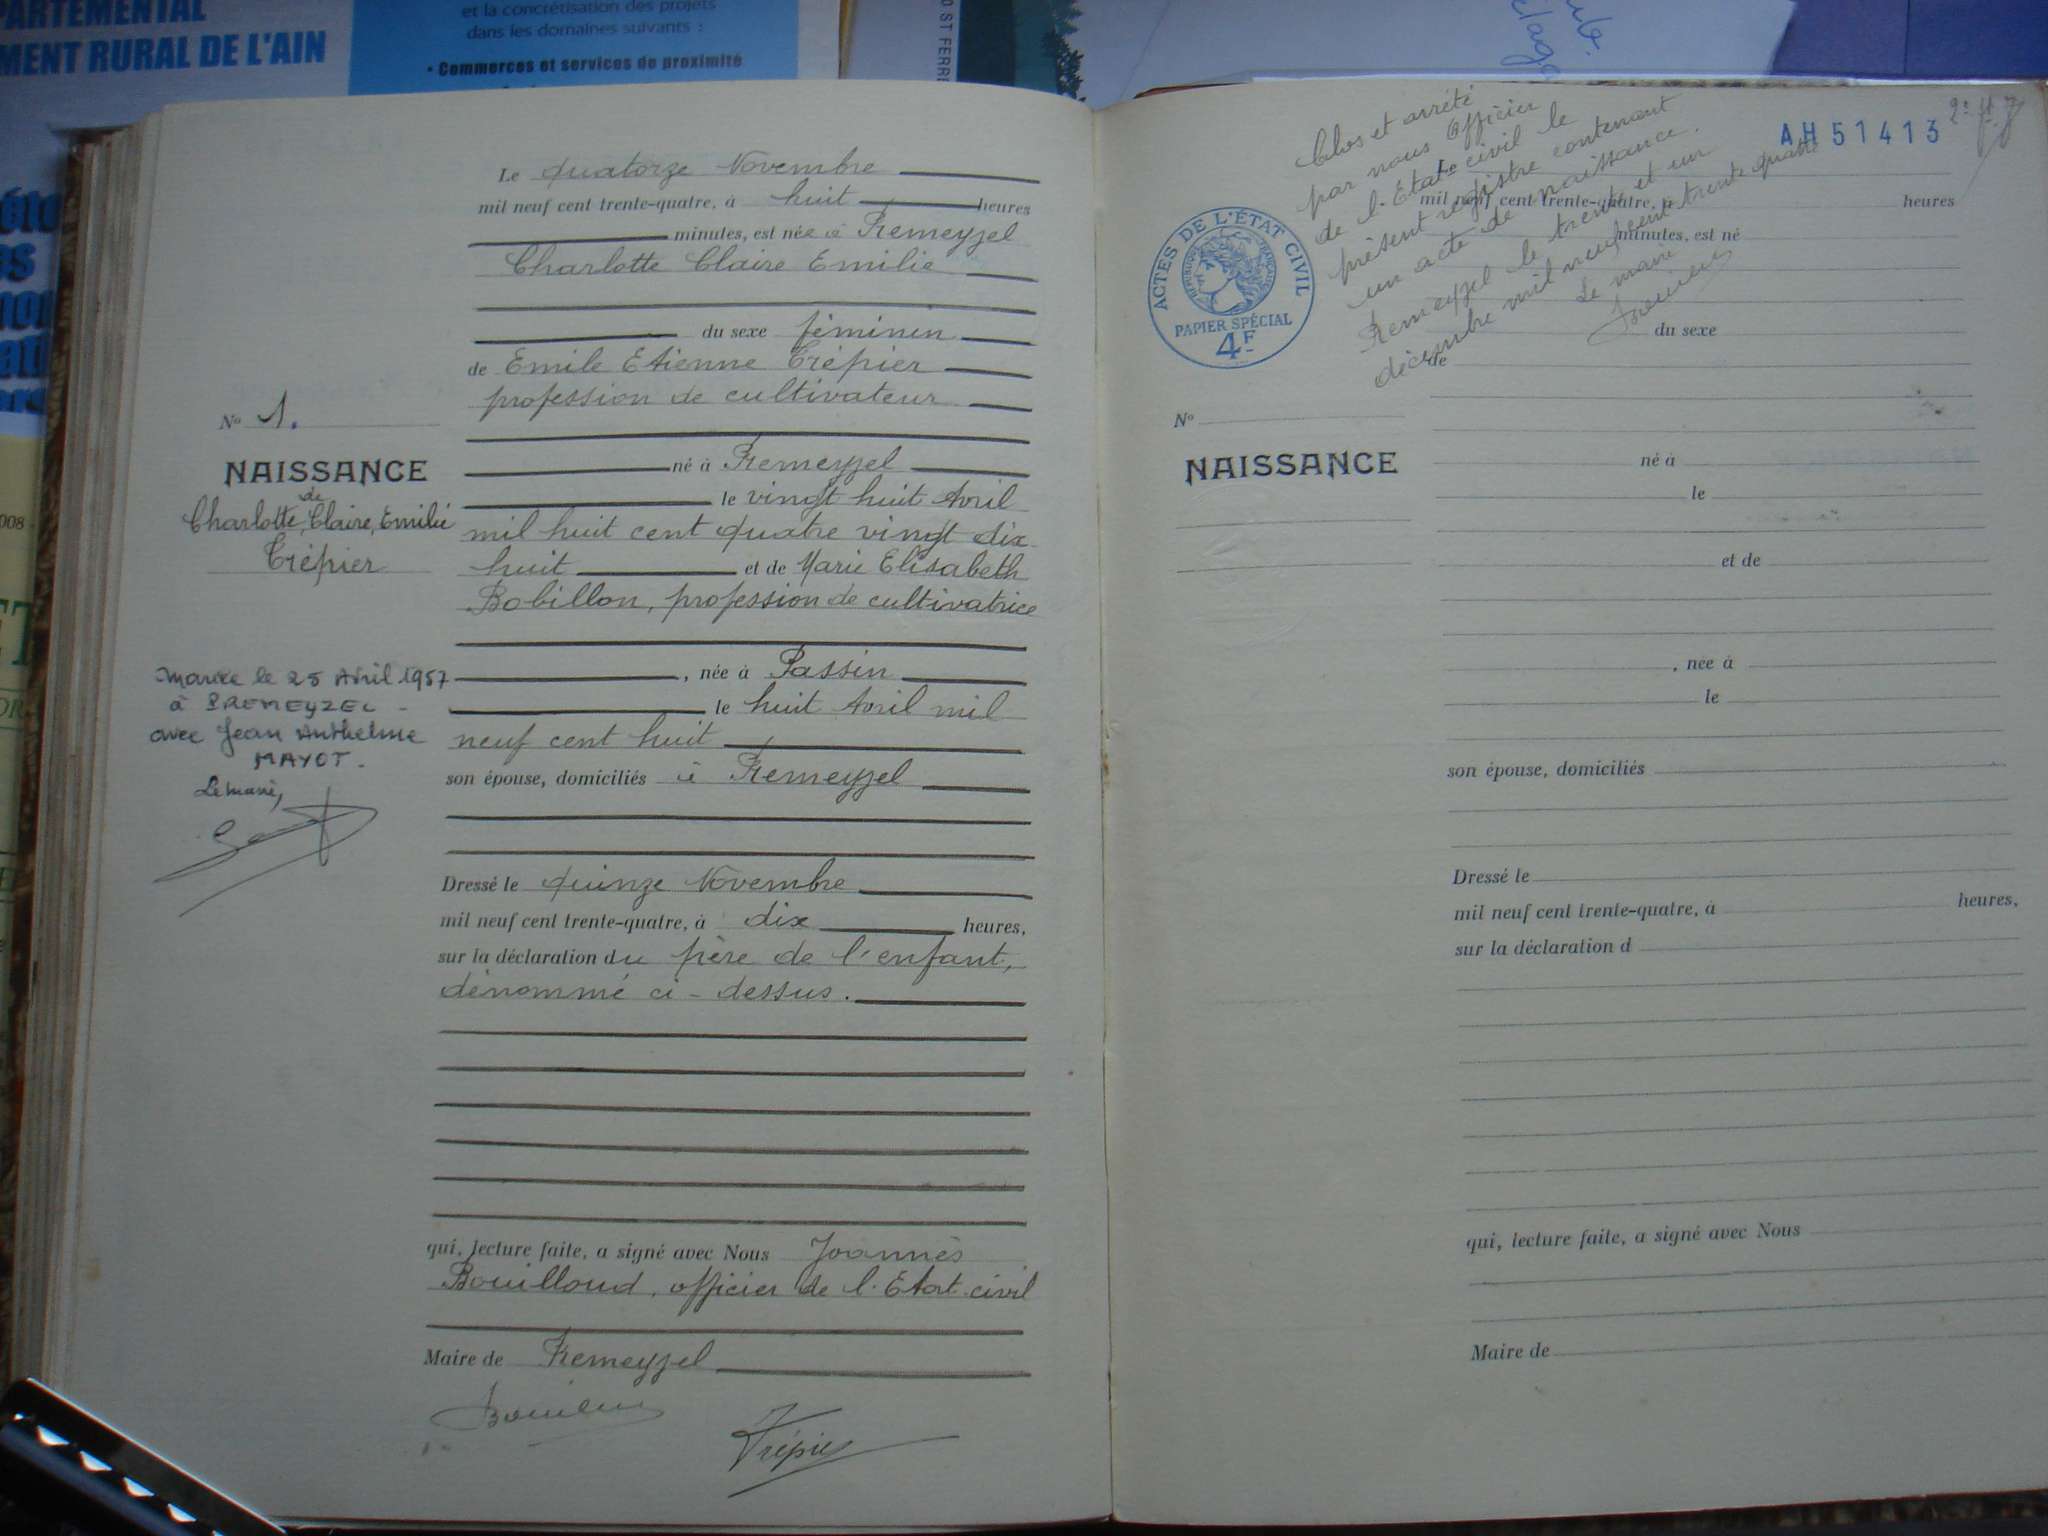 PARTEMENTAL
MENT RURAL DE L'AIN
et la concrétisation des projets
dans les domaines suivants :
• Commerces et services de proximité
0 ST FERRE
Le quatorze Novembre
mil neuf cent trente-quatre, à huit heures
minutes, est née à Premeyzel
Charlotte Claire Emilie
du sexe féminin
de Emile Etienne Trépier
profession de cultivateur
né à Premeyzel
le vingt huit Avril
mil huit cent quatre vingt dix
huit et de Marie Elisabeth
Bobillon, profession de cultivatrice
, née à Passin
le huit Avril mil
neuf cent huit
son épouse, domiciliés à Premeyzel
Dressé le quinze Novembre
mil neuf cent trente-quatre, à dix heures,
sur la déclaration du père de l'enfant,
dénommé ci-dessus.
qui, lecture faite, a signé avec Nous Joannès
Bouilloud, officier de l'Etat-civil
Maire de Premeyzel
Trépier
No 1.
NAISSANCE
de
Charlotte, Claire, Emilie
Trépier
Mariée le 25 Avril 1957
à PREMEYZEL -
avec Jean Anthelme
MAYOT.
Le maire,
AH 51413
Clos et arrêté
par nous Officier
de l'Etat-civil le
présent registre contenant
un acte de naissance.
Premeyzel le trente et un
décembre mil neuf cent trente quatre
Le maire
ACTES DE L'ÉTAT CIVIL
RÉPUBLIQUE FRANÇAISE
PAPIER SPÉCIAL
4F
Le
mil neuf cent trente-quatre, à heures
minutes, est né
du sexe
de
No
NAISSANCE
né à
le
et de
, née à
le
son épouse, domiciliés
Dressé le
mil neuf cent trente-quatre, à heures,
sur la déclaration d
qui, lecture faite, a signé avec Nous
Maire de